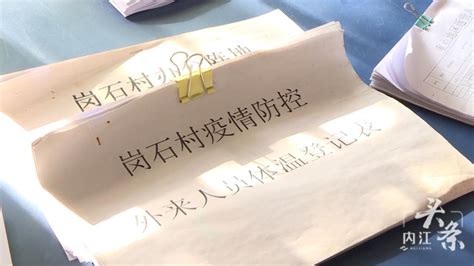 岗石村
岗石村疫情防控
外来人员体温登记表
头条
内江
NEIJIANG